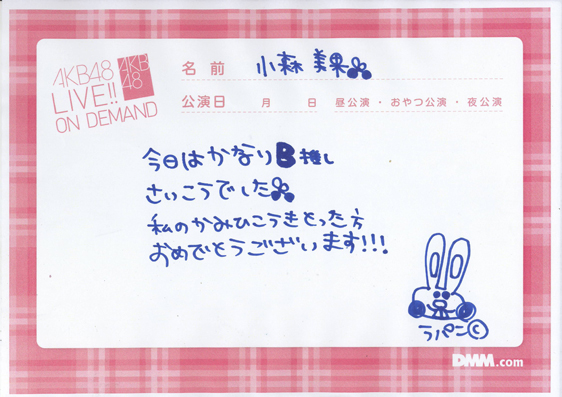 AKB48
LIVE!!
ON DEMAND
AKB
48
名前 小森 美果
公演日 月 日 昼公演・おやつ公演・夜公演
今日はかなりB推し
さいこうでした
私のかみひこうきとった方
おめでとうございます!!!
ラパン©
DMM.com